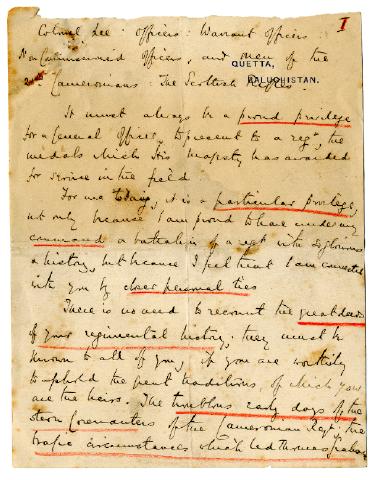 I
Colonel Lee: Officers: Warrant Officers
Non Commissioned Officers, and men of the
QUETTA,
BALUCHISTAN.
2nd Cameronians: The Scottish Rifles.
It must always be a proud privilege
for a General Officer, to present to a regt, the
medals which His Majesty has awarded
for service in the field.
For me today, it is a particular privilege,
not only because I am proud to have under my
command a battalion of a regt with so glorious
a history, but because I feel that I am connected
with you by close personal ties
There is no need to recount the great deeds
of your regimental history, they must be
known to all of you, if you are worthily
to uphold the great traditions, of which you
are the heirs. The troublous early days of the
stern Covenanters of the Cameronian Regt: the
tragic circumstances which led Thomas Graham